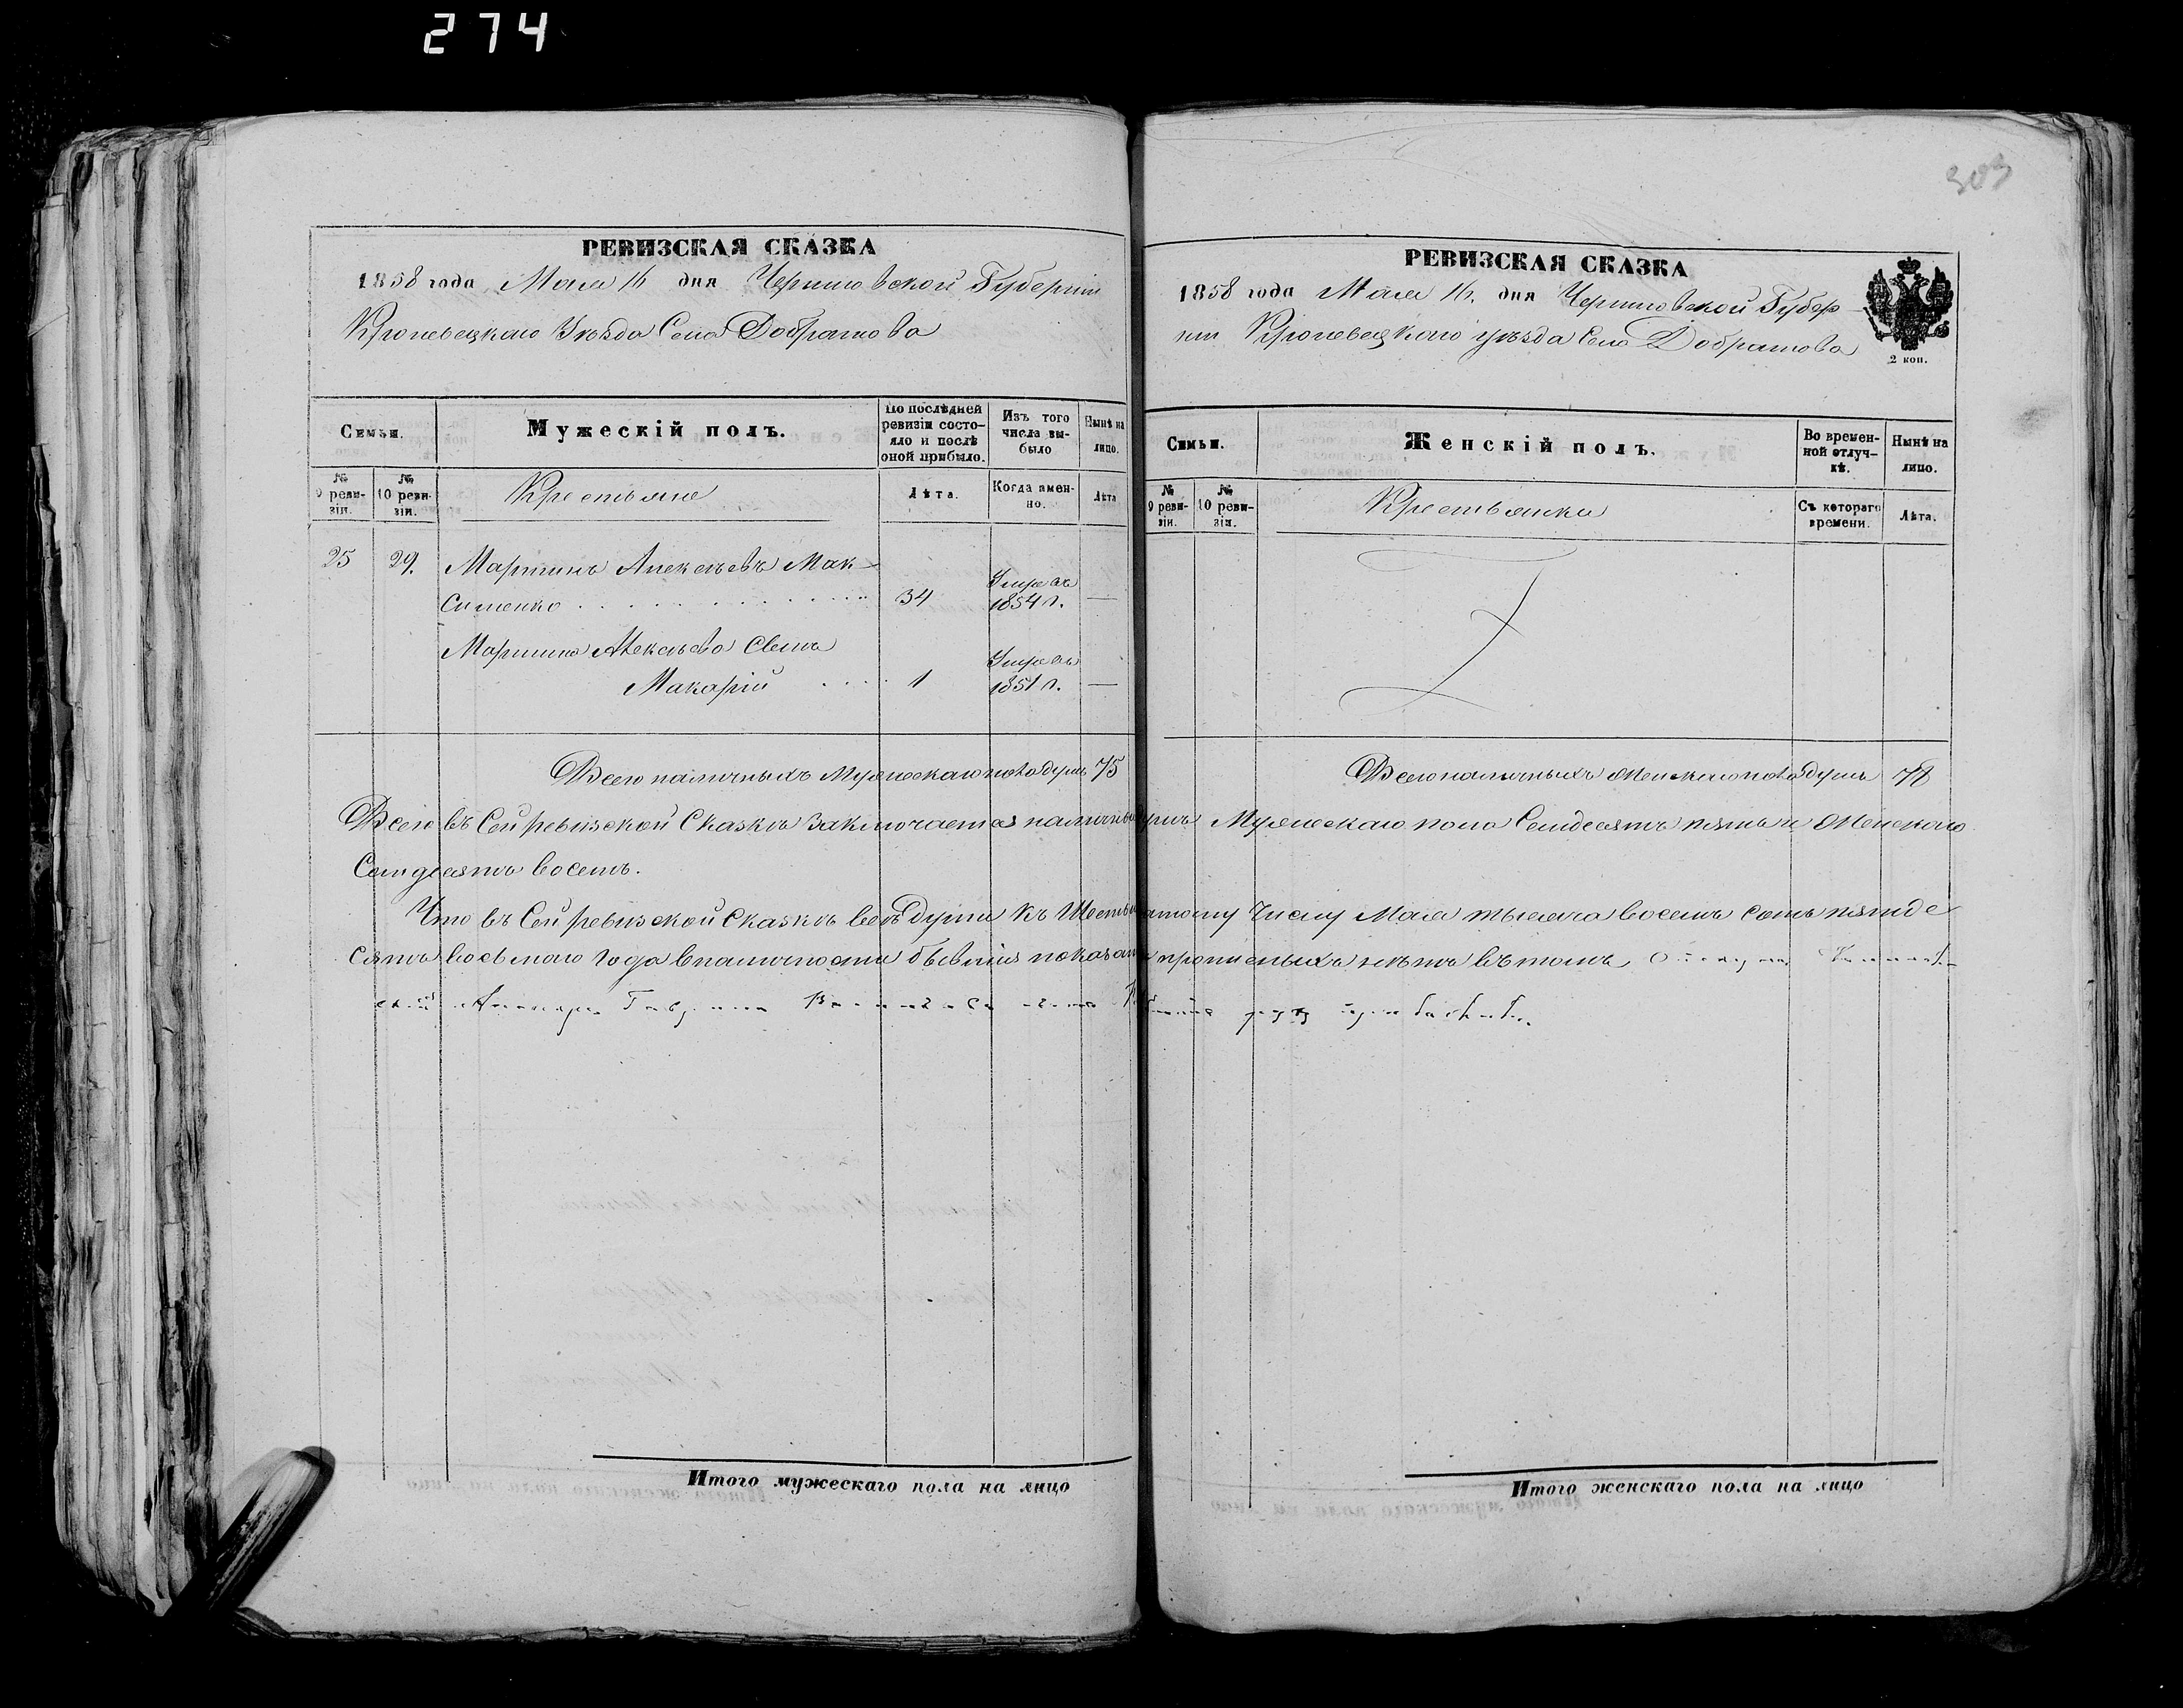 274
303
РЕВИЗСКАЯ СКАЗКА
1858 года Мая 16 дня Черниговской Губерніи
Кролевецкаго Уѣзда Села Добратова
Семьи.
Мужескій полъ.
По послѣдней ревизіи состояло и послѣ оной прибыло.
Изъ того числа выбыло
Нынѣ на лицо.
№ 9 ревизіи.
№ 10 ревизіи.
Крестьяне
Лѣта.
Когда именно.
Лѣта
25 29. Мартинъ Алексѣевъ Мак-
сименко 34 Умре въ 1854 г. —
Мартина Алексѣева Сынъ
Макарій 1 Умре въ 1851 г. —
Всего наличныхъ Мужескаго пола душъ 75
РЕВИЗСКАЯ СКАЗКА
1858 года Мая 16. дня Черниговской Губер
ніи Кролевецкаго уѣзда Села Добратова
2 коп.
Семьи.
Женскій полъ.
Во временной отлучкѣ.
Нынѣ на лицо.
№ 9 ревизіи.
№ 10 ревизіи.
Крестьянки
Съ котораго времени.
Лѣта.
Всего наличныхъ Женскаго пола душъ 78
Всего въ Сей ревизской Сказкѣ Заключается наличныхъ душъ Мужескаго пола Семдесятъ пять и Женского
Семдесятъ восемъ.
Что въ Сей ревизской Сказкѣ всѣ души къ Шестнадцатому Числу Мая тысяча восемъ сотъ пятьде
сятъ восьмого Года вналичности бывшія показаны и прописныхъ нѣтъ въ томъ
Итого мужескаго пола на лицо
Итого женскаго пола на лицо